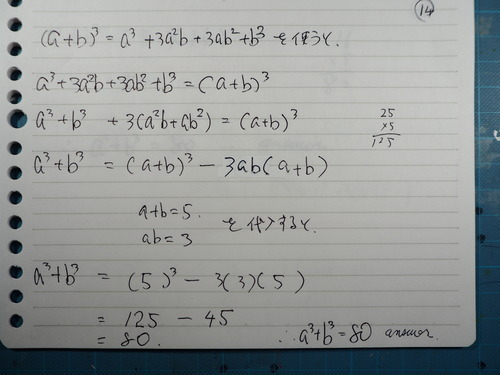 ⑭
(a+b)³ = a³ + 3a²b + 3ab² + b³ を使うと.
a³ + 3a²b + 3ab² + b³ = (a+b)³
a³ + b³ + 3(a²b + ab²) = (a+b)³
25
×5
125
a³ + b³ = (a+b)³ − 3ab(a+b)
a+b = 5.
ab = 3
を代入すると.
a³ + b³ = (5)³ − 3(3)(5)
= 125 − 45
= 80.
∴ a³+b³ = 80 answer.